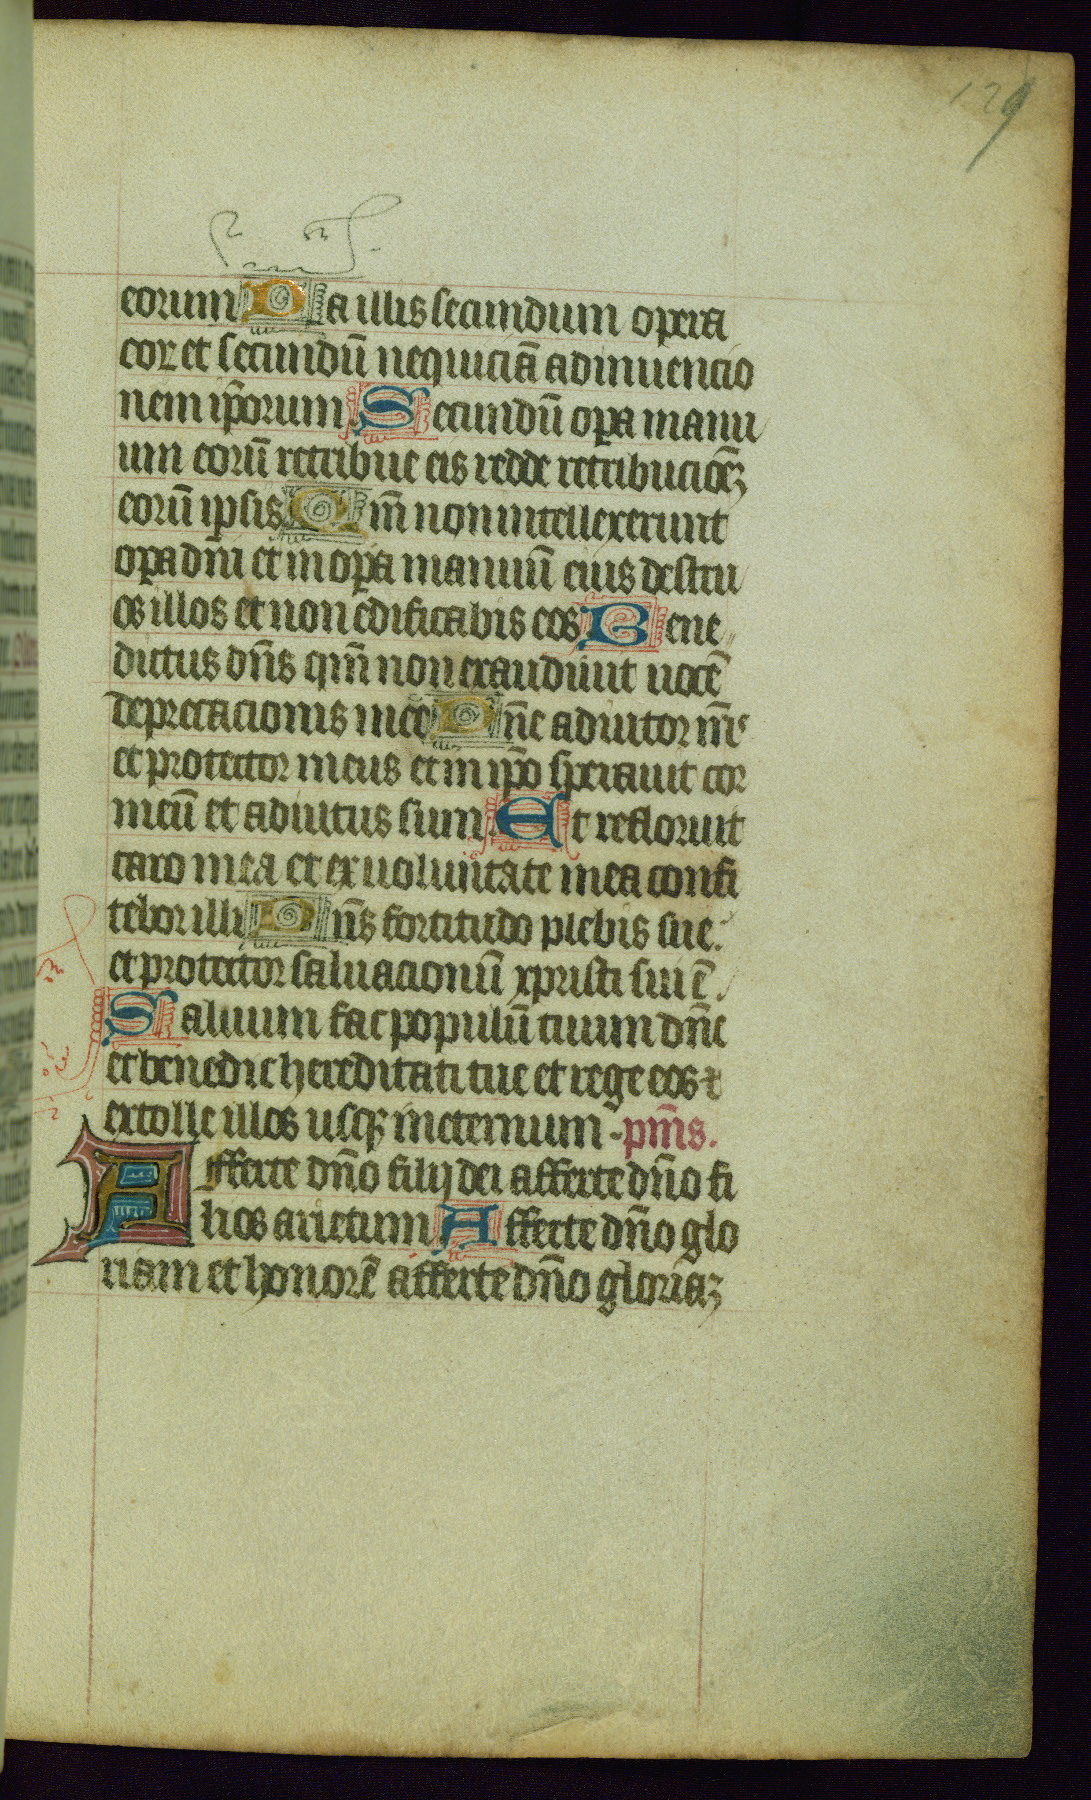 129
eorum Da illis secundum opera
eoꝝ et secundū nequiciā adinuencio
nem ip̄orum Secundū oꝑa manu
um eorū retribue eis redde retribucioēꝫ
eorū ipsis Qm̄ non intellexerunt
oꝑa dn̄i et in oꝑa manuū eius destru
os illos et non edificabis eos Bene
dictus dn̄s qm̄ non exaudiuit uocē
deprecacionis mee Dn̄e adiutor m̄s
et protector meus et in ip̄o sperauit cor
meū et adiutus sum Et refloruit
caro mea et ex uoluntate mea confi
tebor illi Dn̄s fortitudo plebis sue
et protector saluacionū xpristi sui ē
Saluum fac populū tuum dn̄e
et benedic hereditati tue et rege eos ⁊
extolle illos usqꝫ ineternum pm̄s.
Afferte dn̄o filij dei afferte dn̄o fi
lios arietum Afferte dn̄o glo
riam et honorē afferte dn̄o gloriaꝫ